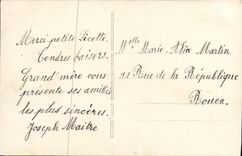 Merci petite Licette
Tendres baisers.
Grand'mère vous
présente ses amitiés
les plus sincères.
Joseph Maitre
Mlle Marie-Alix Martin
12 Rue de la République
Rouen